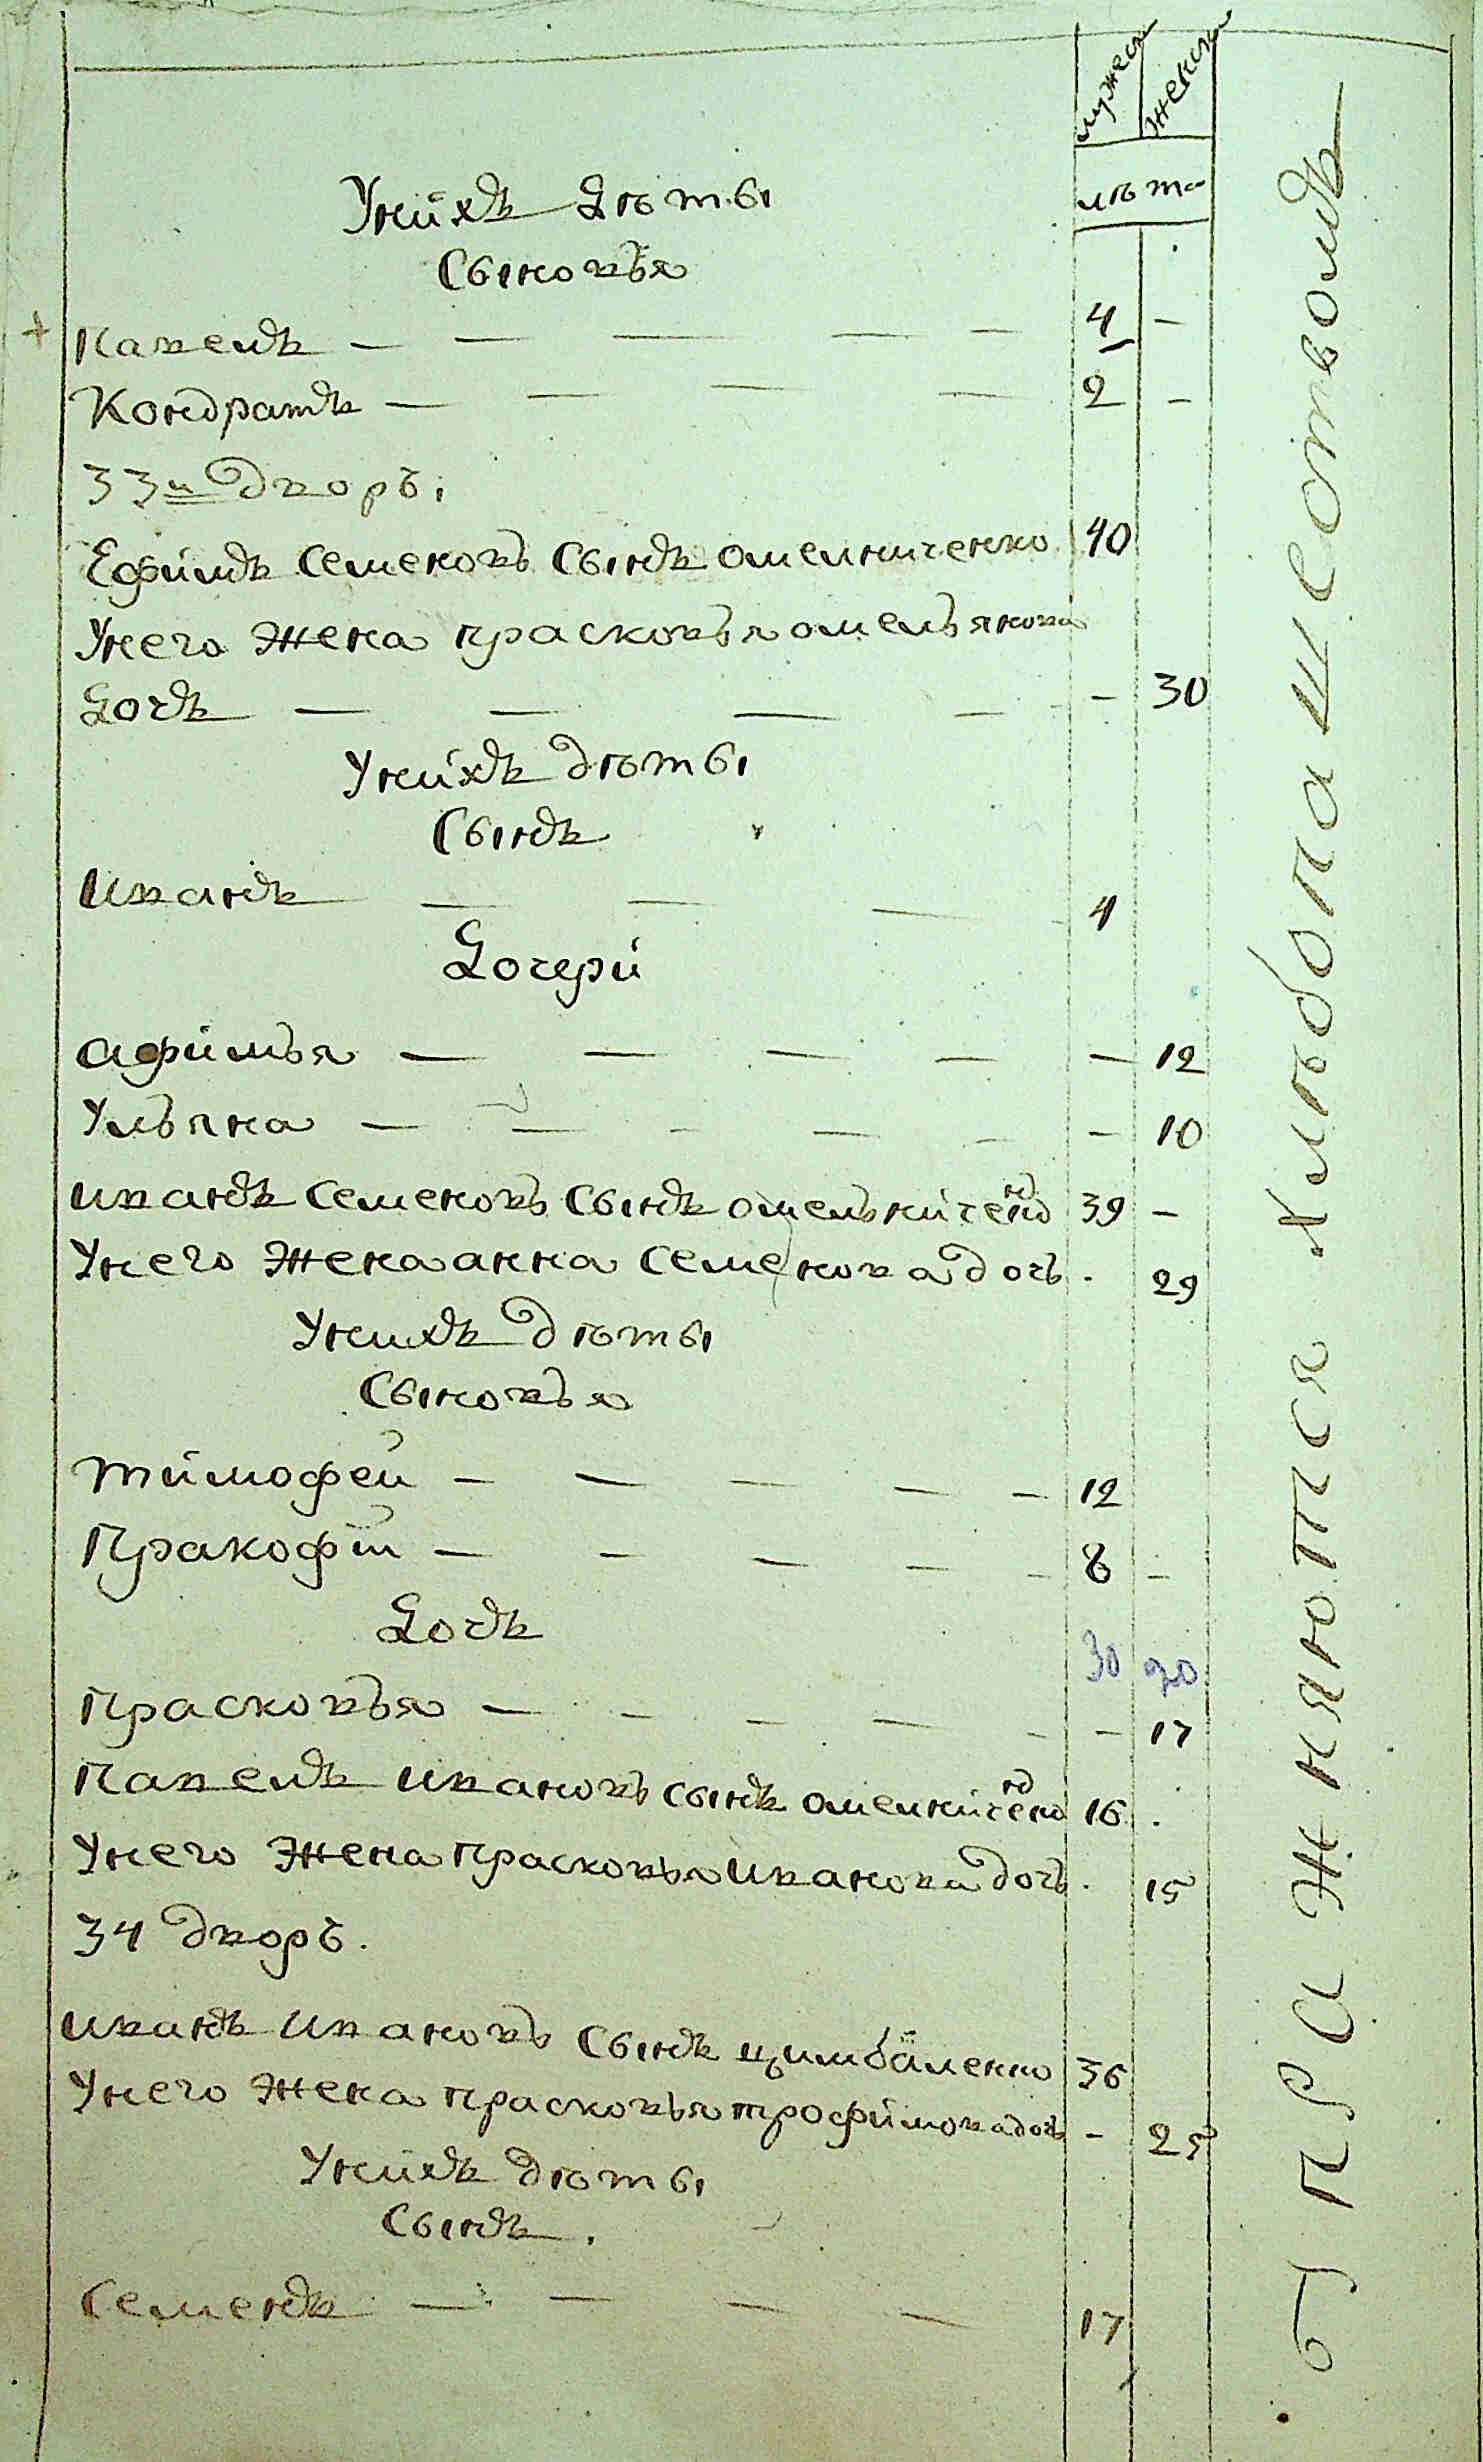 мужеск женска
лѣта
У нихъ дѣти
Сыновья
Павелъ — — — — — 4 —
Кондратъ — — — — 2 —
33й дворъ.
Ефимъ Семеновъ сынъ Омелниченко 40
У него жена Прасковья Омельянова
дочъ — — — — — 30
У нихъ дѣти
Сынъ
Иванъ — — — 4
Дочери
Афимья — — — — — 12
Ульяна — — — — — — 10
Иванъ Семеновъ сынъ Омельниченко 39 —
У него жена Анна Семенова дочь . 29
У нихъ дѣти
Сыновья
Тимофей — — — — — 12
Пракофій — — — — — 8 —
Дочъ
30 20
Прасковья — — — — — — 17
Павелъ Ивановъ сынъ Омелниченко 16 .
У него жена Прасковья Иванова дочь . 15
34 дворъ.
Иванъ Ивановъ сынъ Цимбаленко 36
У него жена Прасковья Трофимова дочь — 25
У нихъ дѣти
Сынъ.
Семенъ — — — — 17
упражняются хлѣбопашествомъ